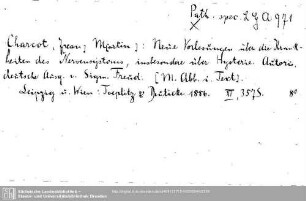 Path. spec. 2 G A 971
Charcot, Jean, Martin: Neue Vorlesungen über die Krank-
heiten des Nervensystems, insbesondere über Hysterie. Autoris.
deutsche Ausg. v. Sigm. Freud. [M. Abb. i. Text].
Leipzig u. Wien: Toeplitz & Deuticke 1886. XI, 357 S. 8°
Sächsische Landesbibliothek –
Staats- und Universitätsbibliothek Dresden